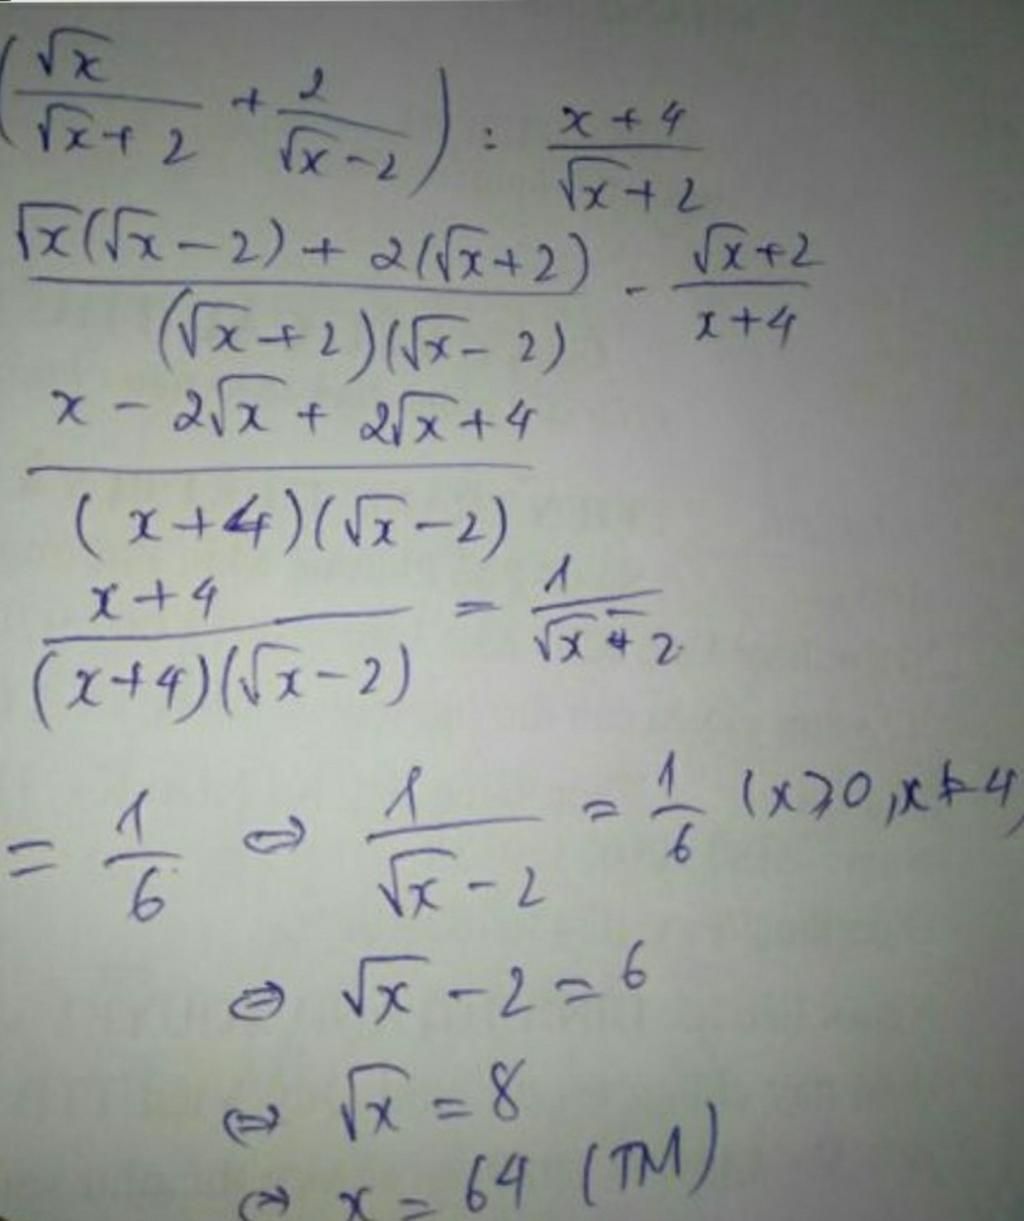 (√x/(√x+2) + 2/(√x-2)) : (x+4)/(√x+2)
(√x(√x-2)+2(√x+2))/((√x+2)(√x-2)) · (√x+2)/(x+4)
(x-2√x+2√x+4)/((x+4)(√x-2))
(x+4)/((x+4)(√x-2)) = 1/(√x-2)
= 1/6 ⇔ 1/(√x-2) = 1/6 (x≥0, x≠4)
⇔ √x-2=6
⇔ √x=8
⇔ x=64 (TM)